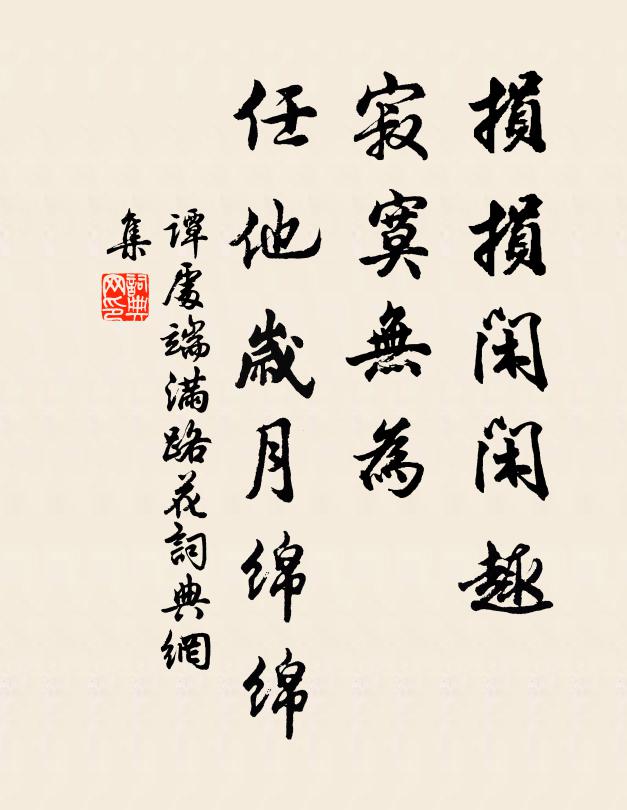 損損閑閑趣
寂寞無為
任他歲月綿綿
谭處端满路花詞典網
集
詞典
网印